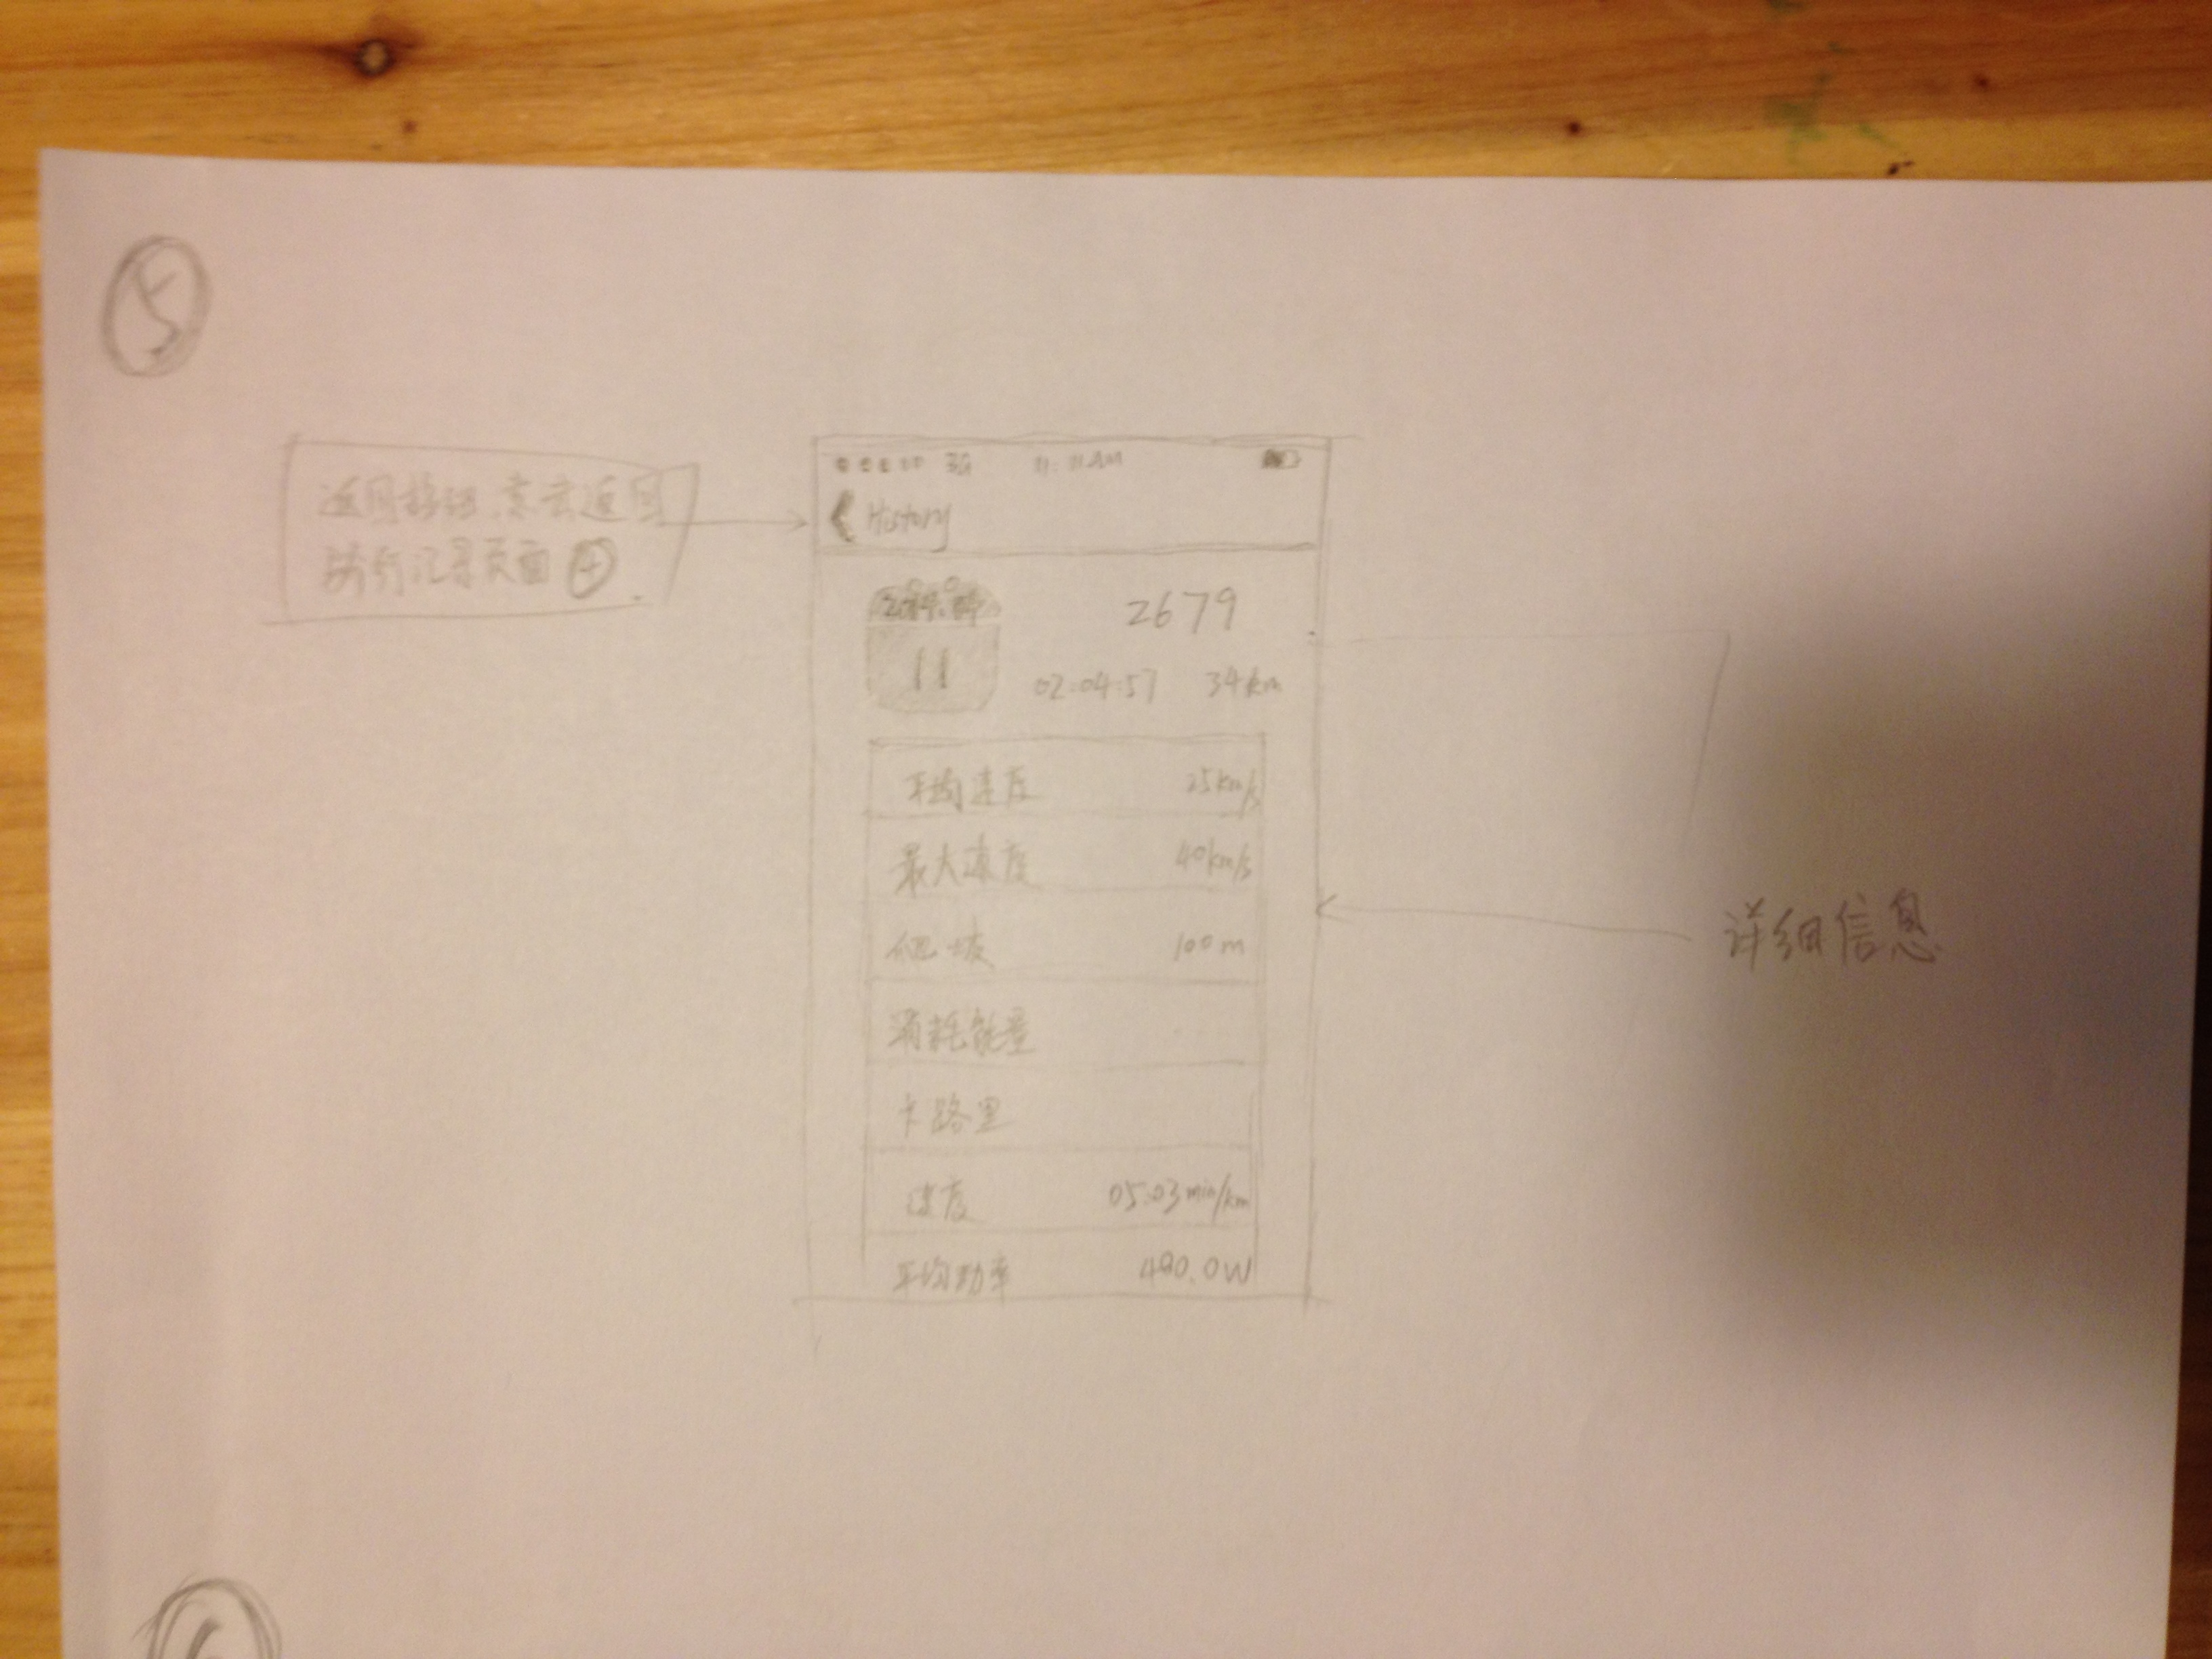 5
返回按钮,点击返回
骑行记录页面 4
3G 11:11 AM
History
11
2679
02:04:57 34km
平均速度 25km/s
最大速度 40km/s
爬坡 100m
消耗能量
卡路里
速度 05:03min/km
平均功率 480.0W
详细信息